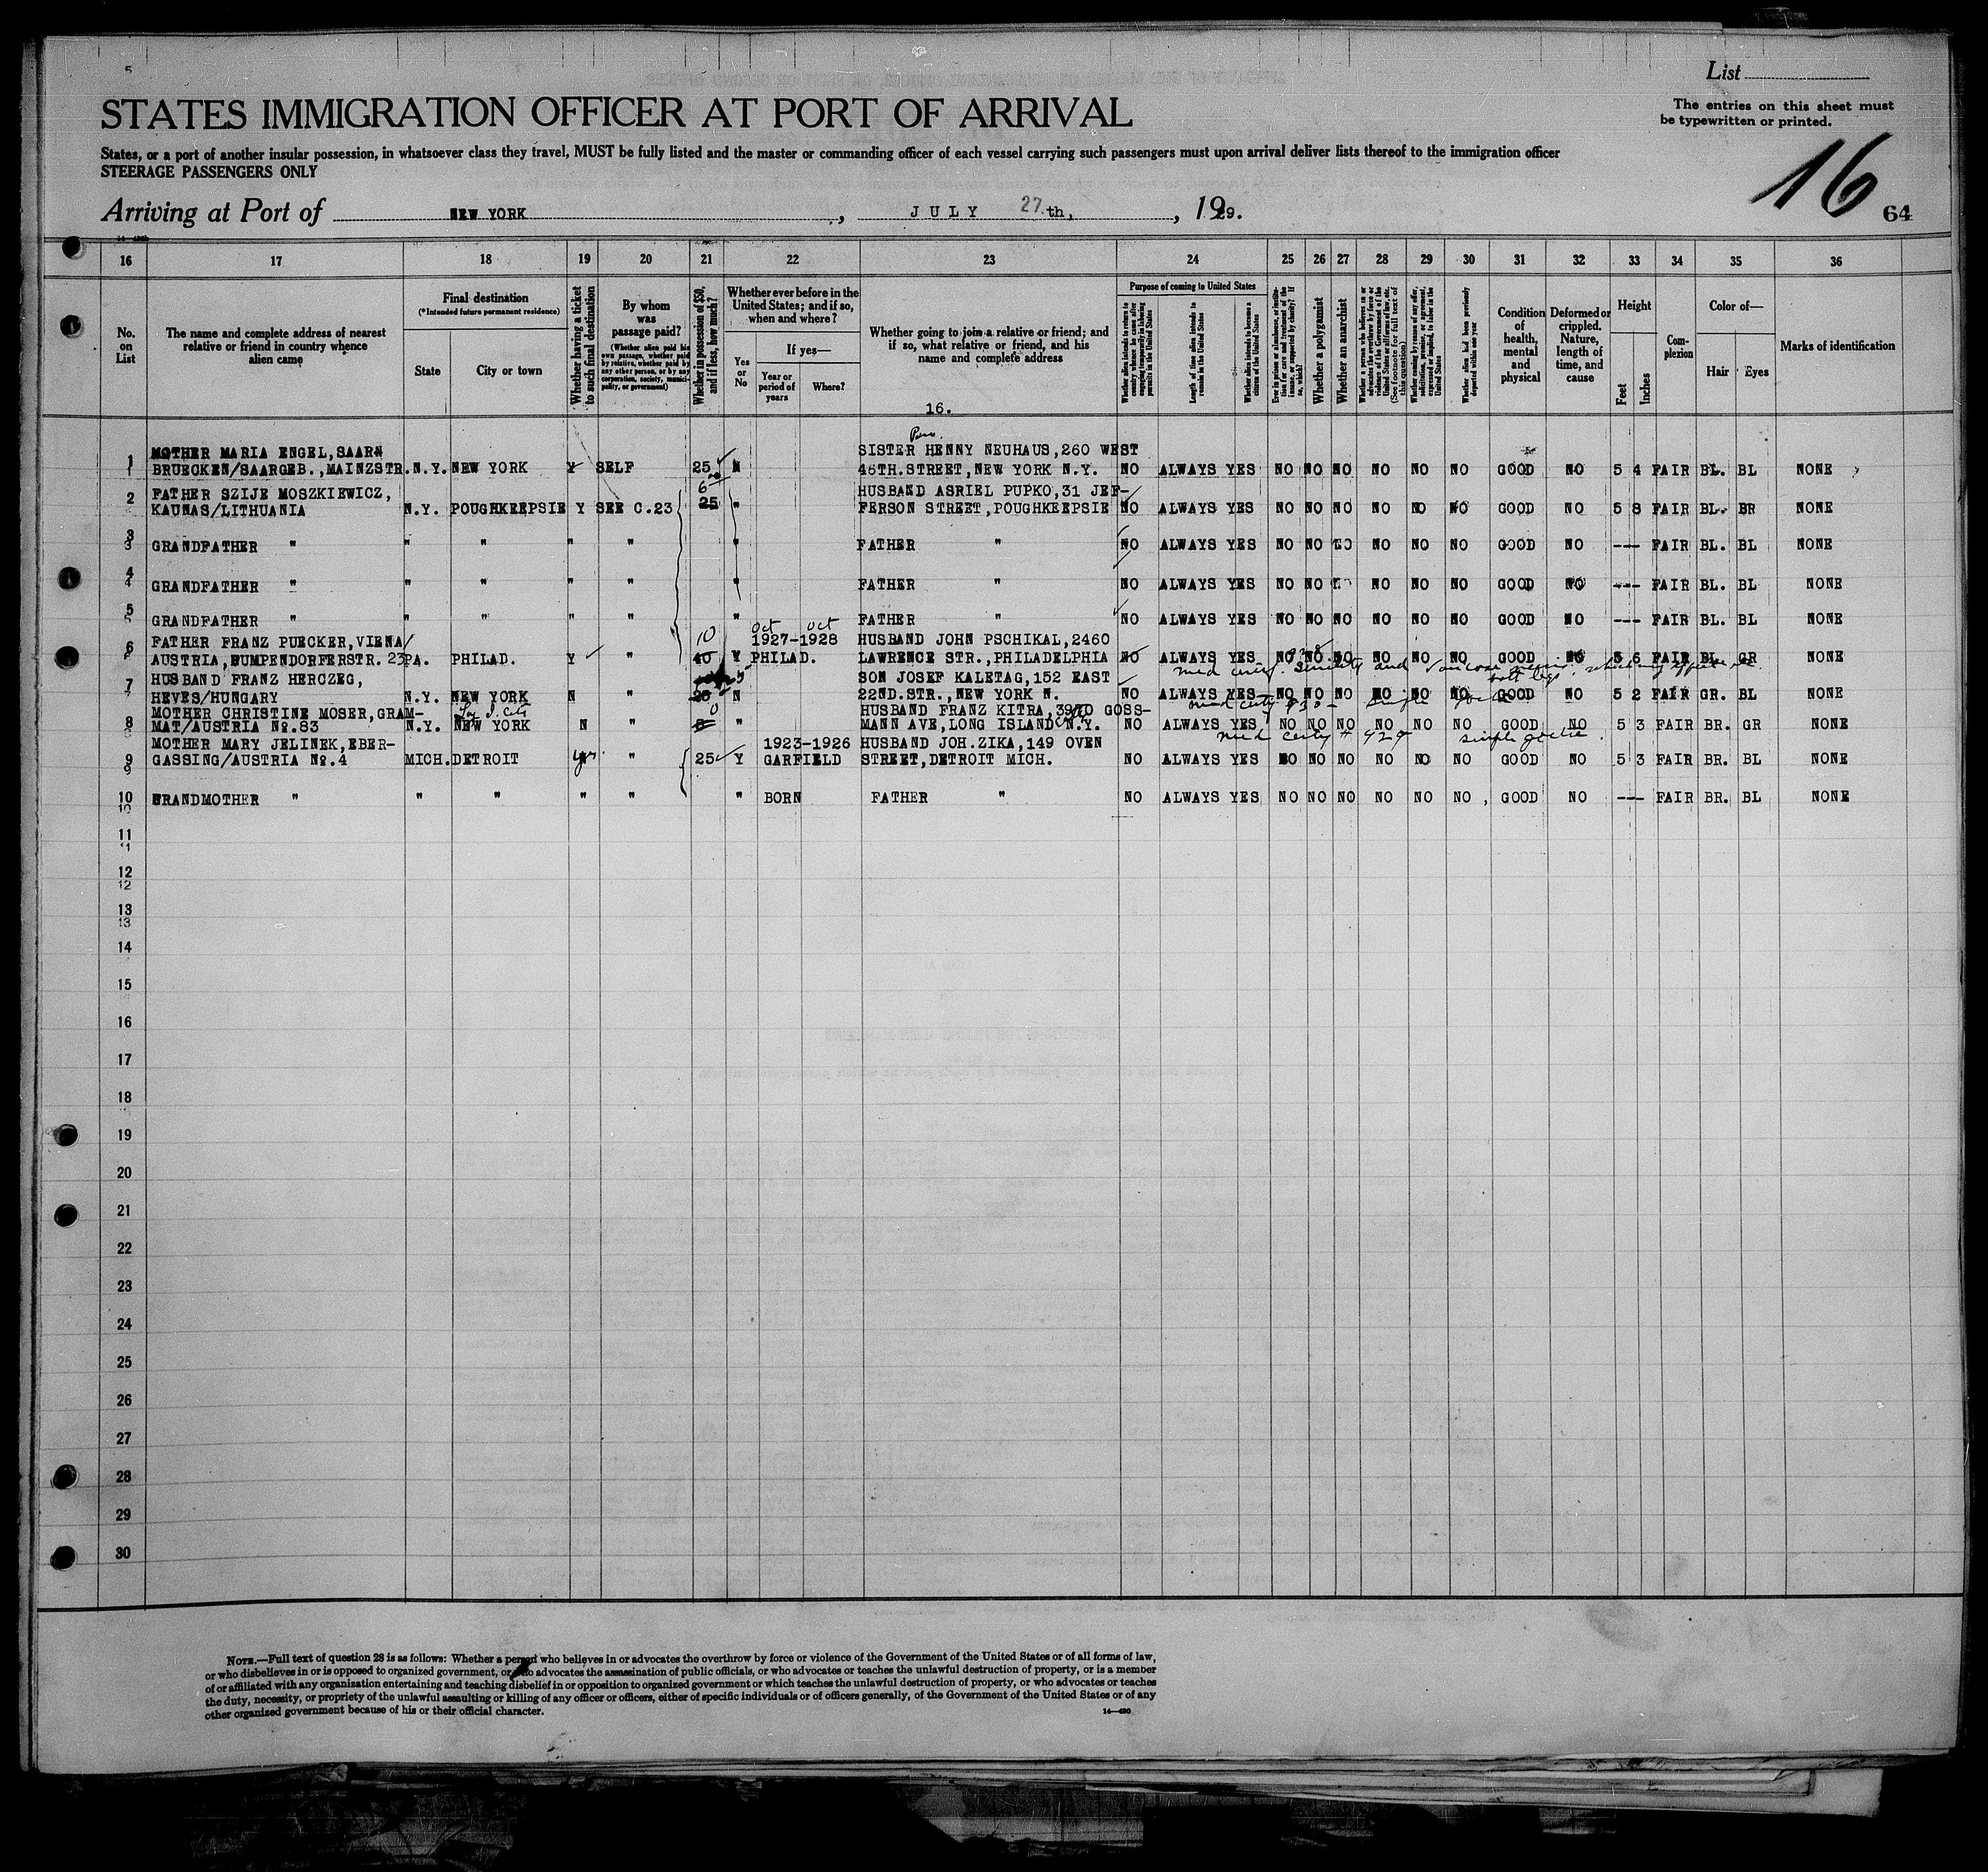 5
List
STATES IMMIGRATION OFFICER AT PORT OF ARRIVAL
The entries on this sheet must
be typewritten or printed.
States, or a port of another insular possession, in whatsoever class they travel, MUST be fully listed and the master or commanding officer of each vessel carrying such passengers must upon arrival deliver lists thereof to the immigration officer
STEERAGE PASSENGERS ONLY
16
Arriving at Port of NEW YORK, JULY 27 th, , 1929.
64
16 17 18 19 20 21 22 23 24 25 26 27 28 29 30 31 32 33 34 35 36
No.
on
List
The name and complete address of nearest
relative or friend in country whence
alien came
Final destination
(*Intended future permanent residence)
State
City or town
Whether having a ticket
to such final destination
By whom
was
passage paid?
(Whether alien paid his
own passage, whether paid
by relative, whether paid by
any other person, or by any
corporation, society, munici-
pality, or government)
Whether in possession of $50,
and if less, how much?
Whether ever before in the
United States; and if so,
when and where?
Yes
or
No
If yes—
Year or
period of
years
Where?
Whether going to join a relative or friend; and
if so, what relative or friend, and his
name and complete address
16.
Purpose of coming to United States
Whether alien intends to return to
country whence he came after
engaging temporarily in laboring
pursuits in the United States
Length of time alien intends to
remain in the United States
Whether alien intends to become a
citizen of the United States
Whether a polygamist
Whether an anarchist
Whether alien had been previously
deported within one year
Condition
of
health,
mental
and
physical
Deformed or
crippled.
Nature,
length of
time, and
cause
Height
Feet
Inches
Com-
plexion
Color of—
Hair
Eyes
Marks of identification
1 MOTHER MARIA ENGEL, SAARN SISTER HENNY NEUHAUS, 260 WEST
1 BRUECKEN/SAARGEB., MAINZSTR. N.Y. NEW YORK Y SELF 25 N 46TH. STREET, NEW YORK N.Y. NO ALWAYS YES NO NO NO NO NO NO GOOD NO 5 4 FAIR BL. BL NONE
2 FATHER SZIJE MOSZKIEWICZ, HUSBAND ASRIEL PUPKO, 31 JEF-
KAUNAS/LITHUANIA N.Y. POUGHKEEPSIE Y SEE C.23 25 " FERSON STREET, POUGHKEEPSIE NO ALWAYS YES NO NO NO NO NO NO GOOD NO 5 8 FAIR BL. BR NONE
3 GRANDFATHER " " " " " " FATHER " NO ALWAYS YES NO NO NO NO NO NO GOOD NO --- FAIR BL. BL NONE
4 GRANDFATHER " " " " " " FATHER " NO ALWAYS YES NO NO NO NO NO GOOD NO --- FAIR BL. BL NONE
5 GRANDFATHER " " " " " " FATHER " NO ALWAYS YES NO NO NO NO NO NO GOOD NO --- FAIR BL. BL NONE
Oct Oct
6 FATHER FRANZ PUECKER, VIENA/ 10 1927-1928 HUSBAND JOHN PSCHIKAL, 2460
AUSTRIA, BUMPENDORFERSTR. 23 PA. PHILAD. Y " 40 Y PHILAD. LAWRENCE STR., PHILADELPHIA NO ALWAYS YES NO NO NO NO NO NO GOOD NO 5 6 FAIR BL. GR NONE
med certif. Senility and Varicose veins both legs,
7 HUSBAND FRANZ HERCZEG, SON JOSEF KALETAG, 152 EAST
HEVES/HUNGARY N.Y. NEW YORK N " 25 N 22ND. STR., NEW YORK N. NO ALWAYS YES NO NO NO NO NO NO GOOD NO 5 2 FAIR GR. BL NONE
8 MOTHER CHRISTINE MOSER, GRAM- HUSBAND FRANZ KITRA, GOSS-
MAT/AUSTRIA No. 83 N.Y. NEW YORK N " " MANN AVE, LONG ISLAND N.Y. NO ALWAYS YES NO NO NO NO NO NO GOOD NO 5 3 FAIR BR. GR NONE
med certif # 929 simple goitre.
9 MOTHER MARY JELINEK, EBER- 1923-1926 HUSBAND JOH. ZIKA, 149 OVEN
GASSING/AUSTRIA No. 4 MICH. DETROIT yes " 25 Y GARFIELD STREET, DETROIT MICH. NO ALWAYS YES NO NO NO NO NO NO GOOD NO 5 3 FAIR BR. BL NONE
10 GRANDMOTHER " " " " " " BORN FATHER " NO ALWAYS YES NO NO NO NO NO NO GOOD NO --- FAIR BR. BL NONE
11
12
13
14
15
16
17
18
19
20
21
22
23
24
25
26
27
28
29
30
NOTE.—Full text of question 28 is as follows: Whether a person who believes in or advocates the overthrow by force or violence of the Government of the United States or of all forms of law,
or who disbelieves in or is opposed to organized government, or who advocates the assassination of public officials, or who advocates or teaches the unlawful destruction of property, or is a member
of or affiliated with any organization entertaining and teaching disbelief in or opposition to organized government or which teaches the unlawful destruction of property, or who advocates or teaches
the duty, necessity, or propriety of the unlawful assaulting or killing of any officer or officers, either of specific individuals or of officers generally, of the Government of the United States or of any
other organized government because of his or their official character.
14—430